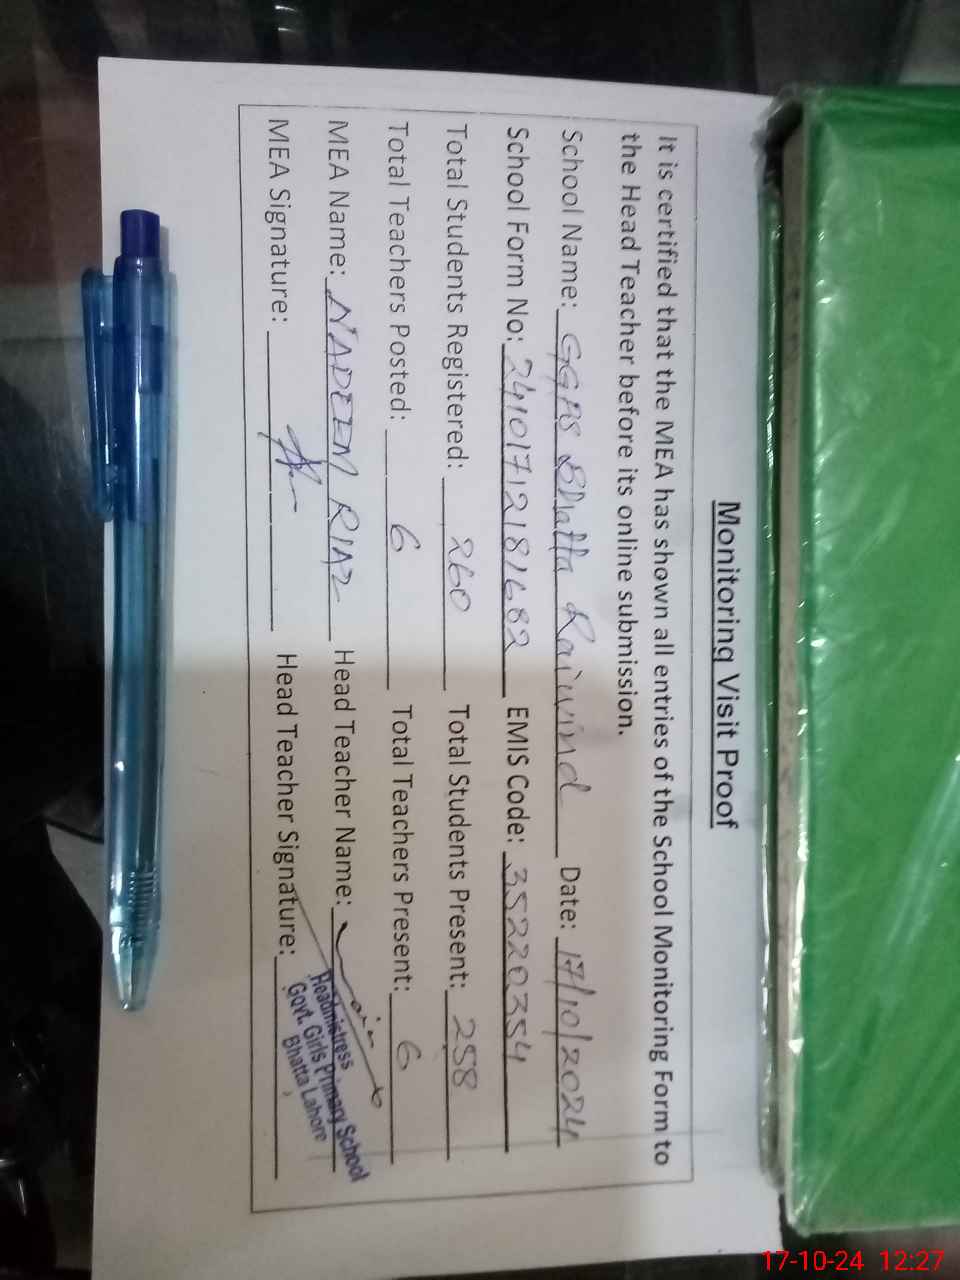 Monitoring Visit Proof
It is certified that the MEA has shown all entries of the School Monitoring Form to
the Head Teacher before its online submission.
School Name: GGPS Bhatta Raiwind Date: 17/10/2024
School Form No: 24101712181682 EMIS Code: 35220354
Total Students Registered: 260 Total Students Present: 258
Total Teachers Posted: 6 Total Teachers Present: 6
MEA Name: NADEEM RIAZ Head Teacher Name:
MEA Signature: Head Teacher Signature:
Headmistress
Govt. Girls Primary School
Bhatta Lahore
17-10-24 12:27